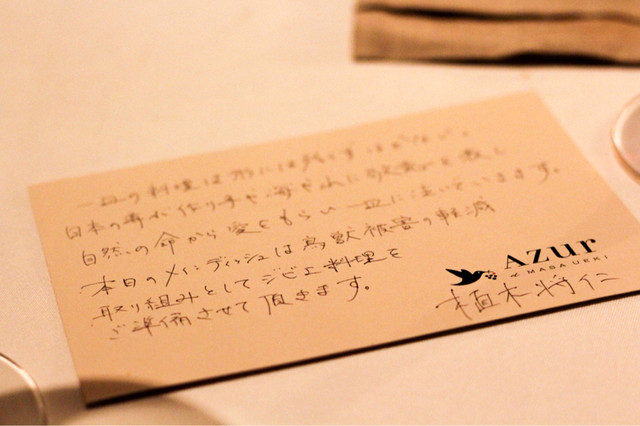 一皿の料理は形には残らずはかない。
日本の海が作り手や に敬意を表し
自然の命から愛をもらい一皿に注いでいきます。
本日のメインディッシュは鳥獣被害の軽減
取り組みとしてジビエ料理を
ご準備させて頂きます。
Azur
et MASA UEKI
植木将仁